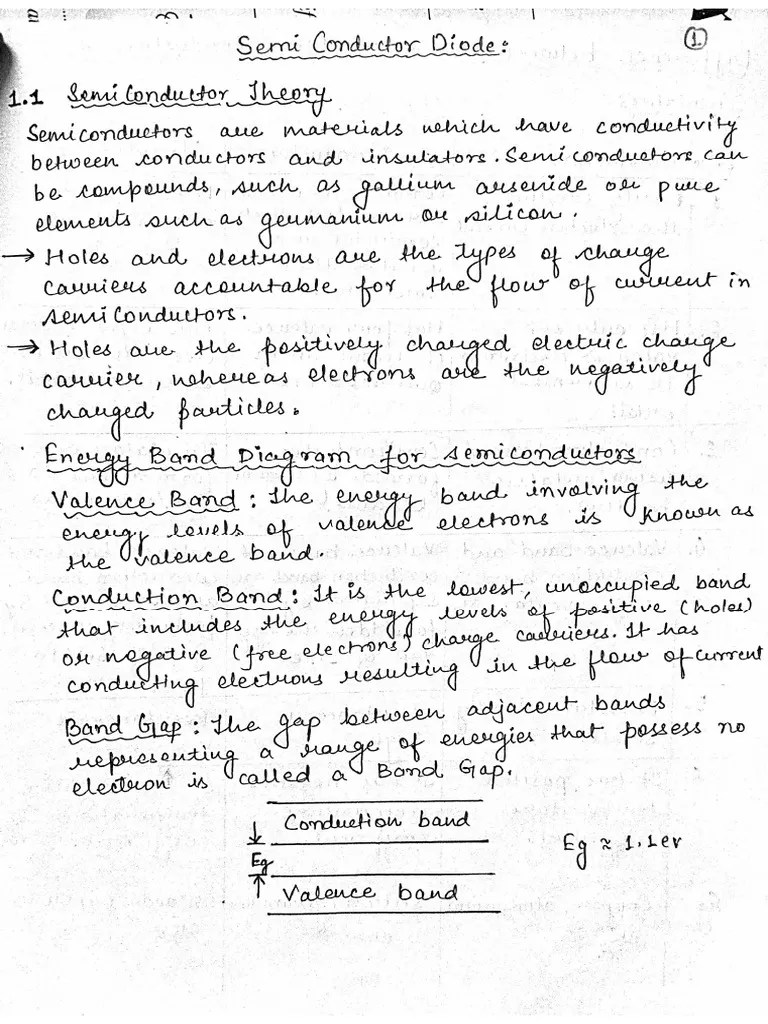 Semi Conductor Diode:
1
1.1 Semi Conductor Theory
Semiconductors are materials which have conductivity
between conductors and insulators. Semiconductors can
be compounds, such as gallium arsenide or pure
elements such as germanium or silicon.
→ Holes and electrons are the types of charge
carriers accountable for the flow of current in
semiconductors.
→ Holes are the positively charged electric charge
carrier, whereas electrons are the negatively
charged particles.
Energy Band Diagram for semiconductors
Valence Band: The energy band involving the
energy levels of valence electrons is known as
the valence band.
Conduction Band: It is the lowest, unoccupied band
that includes the energy levels of positive (holes)
or negative (free electrons) charge carriers. It has
conducting electrons resulting in the flow of current
Band Gap: The gap between adjacent bands
representing a range of energies that possess no
electron is called a Band Gap.
Conduction band
Eg
Eg ≈ 1.1ev
Valence band